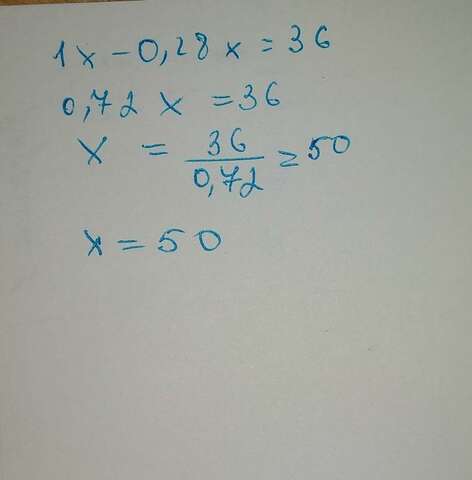 1x - 0,28x = 36
0,72x = 36
x = 36/0,72 = 50
x = 50